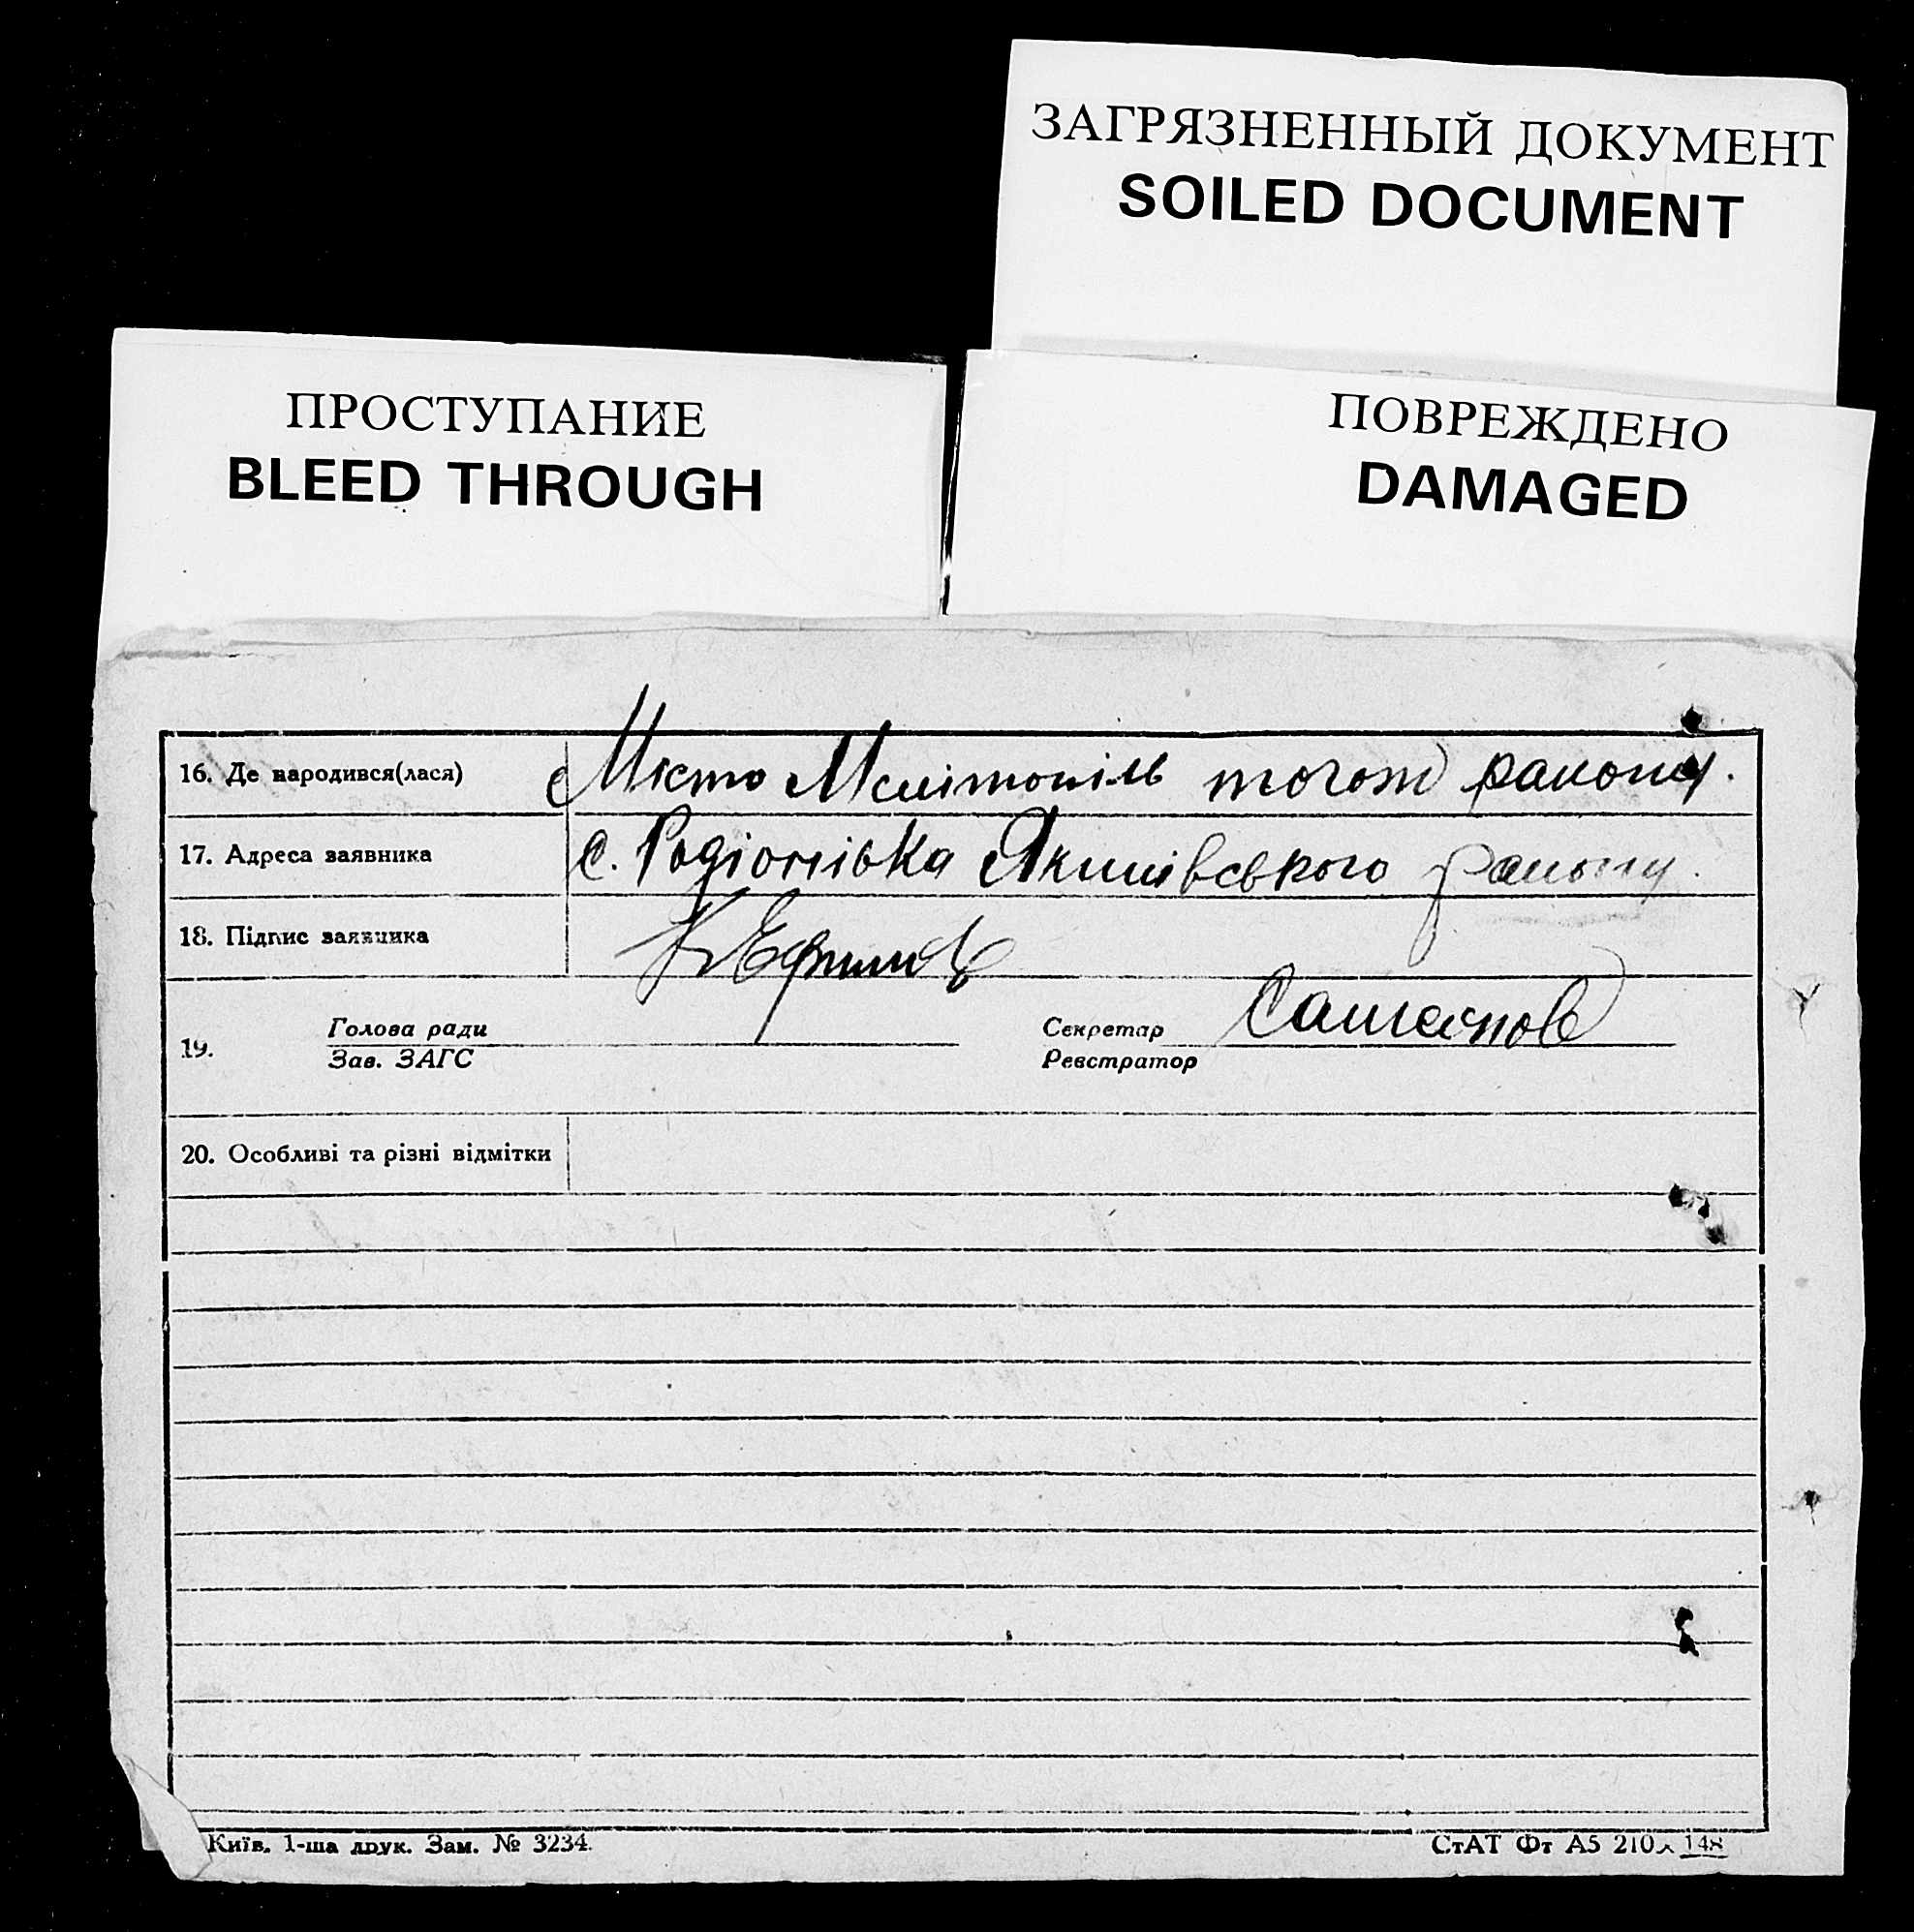 ЗАГРЯЗНЕННЫЙ ДОКУМЕНТ
SOILED DOCUMENT
ПРОСТУПАНИЕ
BLEED THROUGH
ПОВРЕЖДЕНО
DAMAGED
16. Де народився(лася) Місто Мелітопіль тогож району.
17. Адреса заявника с. Родіонівка Якимівського району.
18. Підпис заявника
19. Голова ради
Зав. ЗАГС
Секретар
Реєстратор
20. Особливі та різні відмітки
Київ. 1-ша друк. Зам. № 3234.
СтАТ Фт А5 210х148